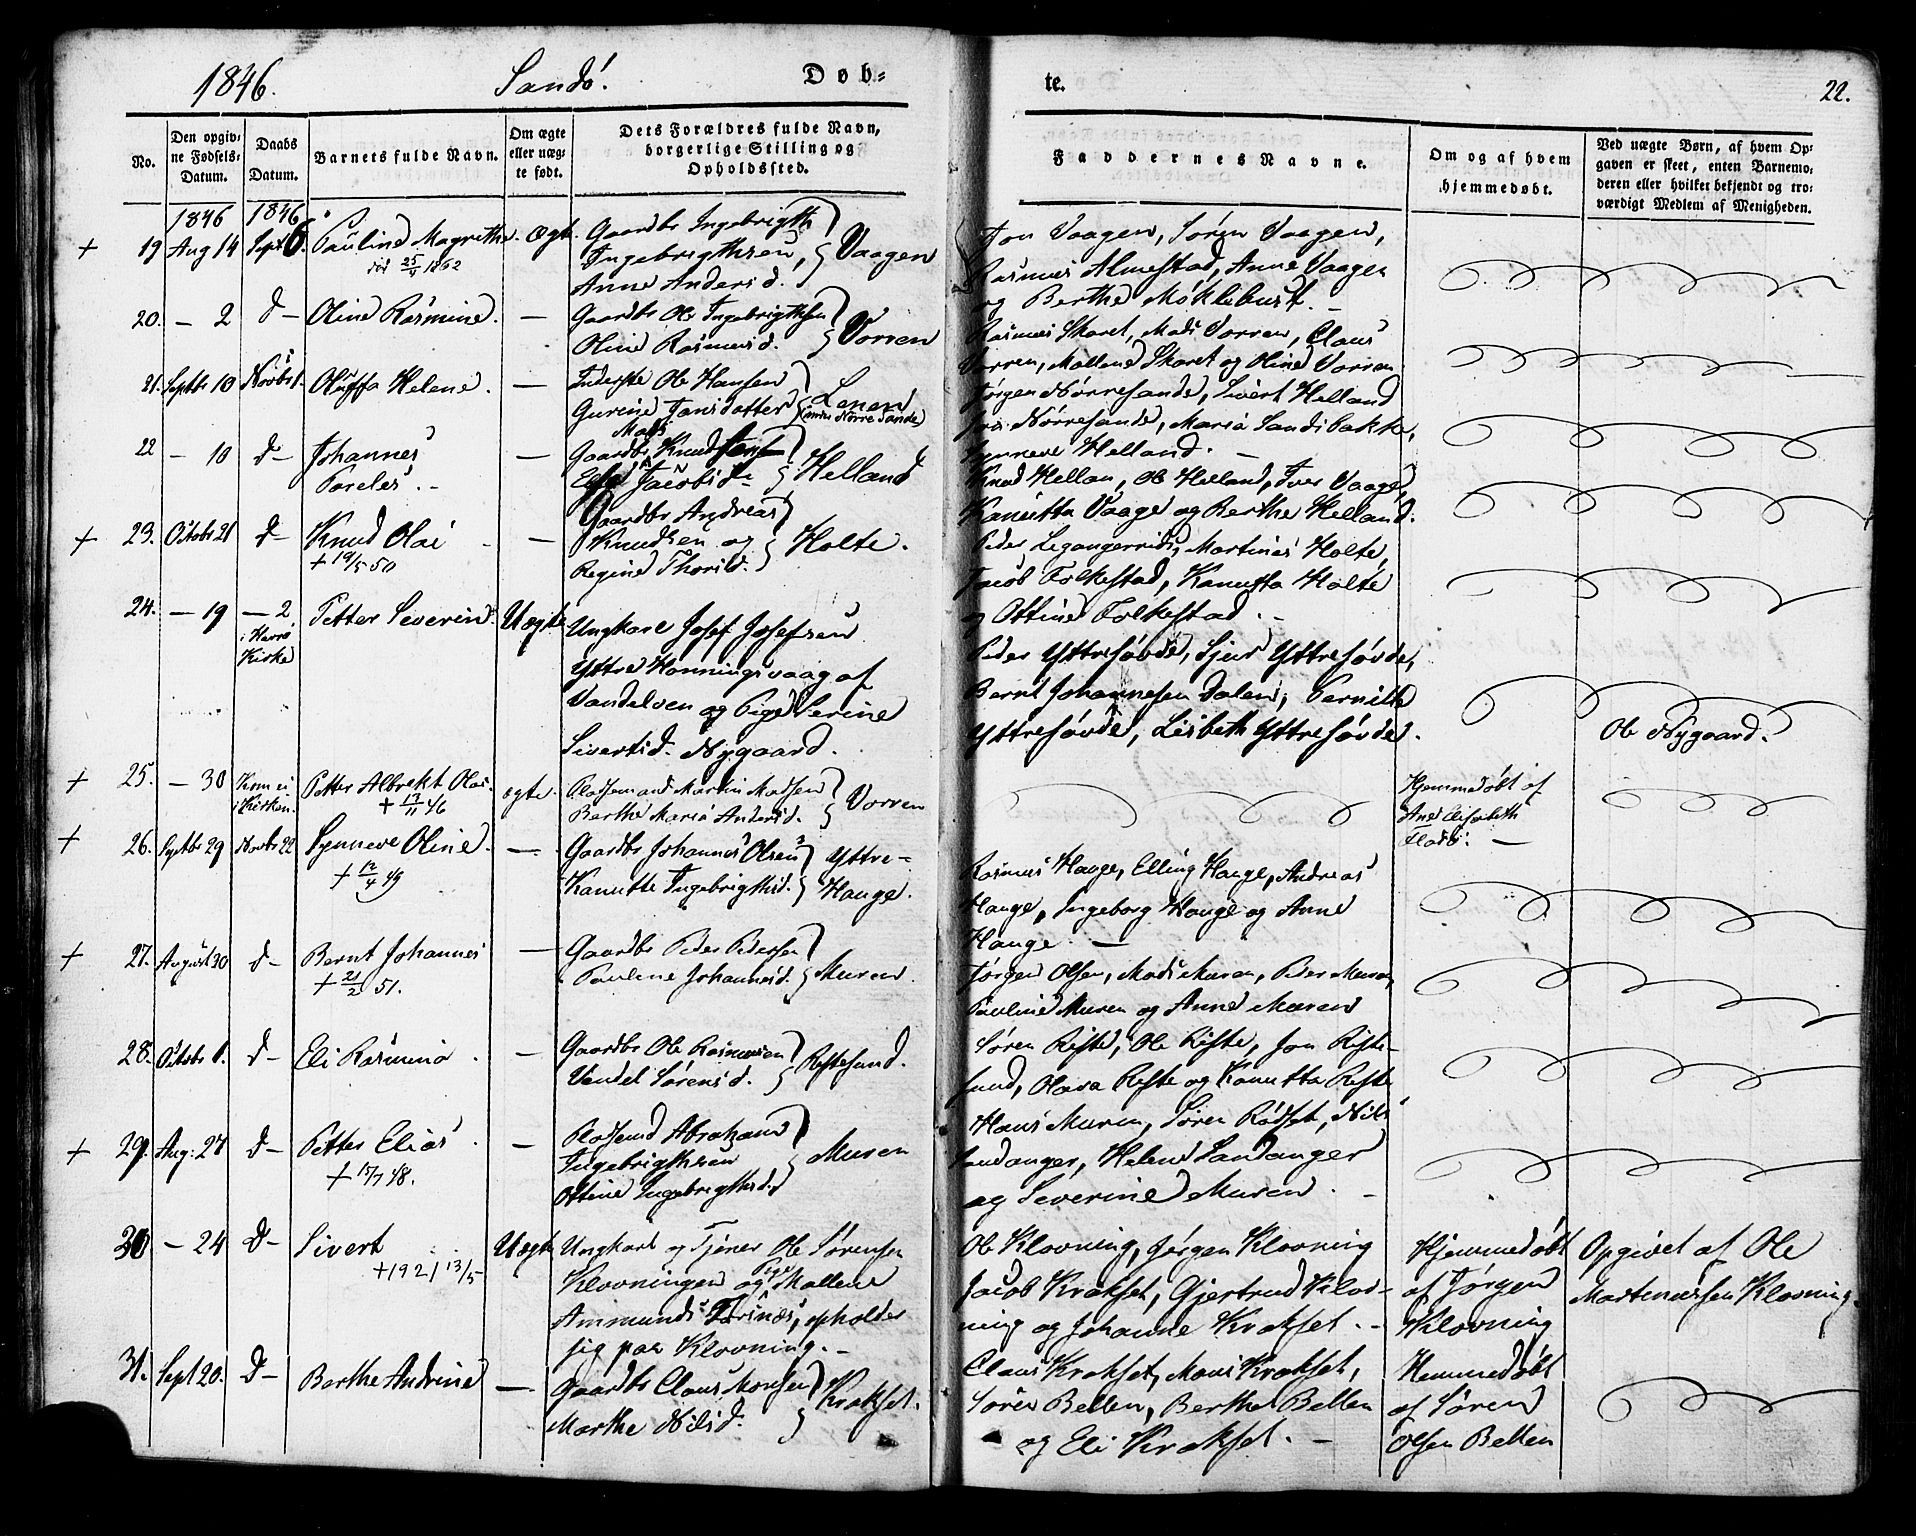 1846. Sandö. Döb-
te. 22.
No.
Den opgiv-
ne Fødsels-
Datum.
Daabs
Datum.
Barnets fulde Navn.
Om ægte
eller uæg-
te født.
Dets Forældres fulde Navn,
borgerlige Stilling og
Opholdssted.
Faddernes Navne.
Om og af hvem
hjemmedøbt.
Ved uægte Børn, af hvem Op-
gaven er skeet, enten Barnemo-
deren eller hvilket bekjendt og tro-
værdigt Medlem af Menigheden.
1846 1846
+ 19 Aug 14 Sept 6. Pauline Magrethe. ægt. Gaardbr Ingebrigth
död 25/4 1862 Ingebrigthsen, Vaagen
Anne Andersd.
Jon Vaagen, Søren Vaagen,
Rasmus Almestad, Anne Vaagen
og Berthe Möklebust. -
20. - 2 d- Oline Rasmine. - Gaardbr Ole Ingebrigthsen
Oline Rasmusd. Vorren
Rasmus Skaret, Mads Vorren, Claus
Vorren, Mallene Skaret og Oline Vorren
21. Septbr 10 Novbr 1. Oluffa Helene. - Inderste Ole Hansen
Gurine Jonsdotter Lenen
Nørre Sande
Jørgen Nørresande, Sivert Helland
Nørresande, Maria Sandsbakke,
Synneve Helland. -
22 - 10 d- Johannes - Gaardbr Mads Knudsen
Pareles. - Jacobsd. Helland
Knud Hellan, Ole Helland, Iver Vaage,
Kanutta Vaage og Berthe Helland.
+ 23. Octobr 21 d- Knud Olai - Gaardbr Andreas
+ 19/5 50 Knudsen og Holte.
Regine Thorsd.
Peder Legangerseide, Martinus Holte,
Jacob Folkestad, Kanutta Holte
og Ottine Folkestad. -
24. - 19 - 2 Petter Severin. Uægte Ungkarl Josef Josefsen
i Herrø
Kirke
Yttre Honningsvaag af
Vandelven og Pige Serine
Sivertsd. Nygaard.
Peder Yttresövde, Sjur Yttresövde,
Bernt Johannesen Dalen, Pernille
Yttresövde, Lisbeth Yttresövde.
Ole Nygaard.
+ 25. - 30 Kom ei Petter Albrekt Olai. ægte. Pladsemand Martin Madsen
i Kirken. + 17/11 46 Berthe Maria Andersd. Vorren
Hjemmedöbt af
Ane Elisabeth
+ 26. Septbr 29 Novbr 22 Synneve Oline. - Gaardbr Johannes Olsen Yttre-
+ 12/4 49 Kanutte Ingebrigthsd. Hauge.
Rasmus Hauge, Elling Hauge, Andreas
Hauge, Ingeborg Hauge og Anne
Hauge. -
+ 27. August 30 d- Bernt Johannes - Gaardbr Peder Pedersen
+ 21/2 51. Pauline Johannesd. Muren.
Jørgen Olsen, Mads Muren, Peder Muren,
Pauline Muren og Anne Muren
28. Octobr 1. d- Eli Rasmina. - Gaardbr Ole Rasmussen
Vendel Sörensd. Ristesund.
Søren Riste, Ole Riste, Jon Riste-
sund, Olava Riste og Kanutta Riste
+ 29. Aug: 27 d- Petter Elias. - Pladsemd Abraham
+ 15/7 48. Ingebrigthsen Muren
Ottine Ingebrigthsd.
Hans Muren, Søren Rödset, Nils
Sandanger, Helene Sandanger
og Severine Muren. -
30 - 24 d- Sivert Uægte Ungkarl og Tjener Ole Sörensen
+ 1921 13/5 Klovningen og Pige Mallene
Ammunds. opholder
sig paa Klovning. -
Ole Klovning, Jørgen Klovning
Jacob Krokset, Gjertrud Klov-
ning og Johanne Krokset. -
Hjemmedöbt
af Jørgen
Klovning
Opgivet af Ole
Martinussen Klovning.
31. Sept 20. d- Berthe Andrine - Gaardbr Claus Monsen
Marthe Nilsd. Krokset.
Claus Krokset, Mons Krokset,
Søren Bellen, Berthe Bellen
og Eli Krokset. -
Hemmedöbt
af Søren
Olsen Bellen